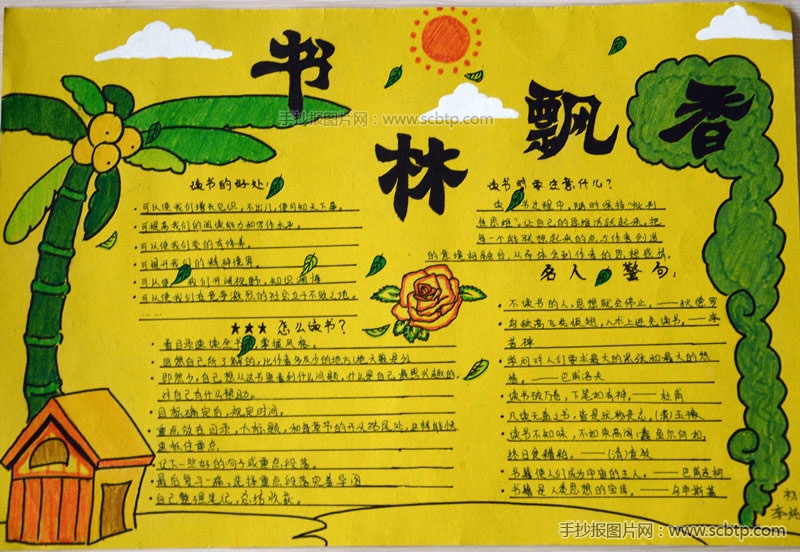 书林飘香
手抄报图片网:www.scbtp.com
读书的好处:
可以使我们增长见识,不出门,便可知天下事。
可提高我们的阅读能力和写作水平。
可以使我们变的有修养。
可提升我们的精神境界。
可以使我们开阔视野,知识渊博
可以使我们在竞争激烈的社会立于不败之地。
... ...
★★★ 怎么读书?
看目录
自己所了解的,比作者多
即然少,自己想从这书里看到什么问题,什么是自己最感兴趣的,
对自己有什么帮助。
目标确定后,规定时间。
重点放在目录,大标题,和每章节的开头结尾处,这样能快
重点
记下一些好的句子或重点段落。
最后复习一遍,选择重点段落
自己整理笔记,总结收获。
读书时要注意什么?
过程中,随时保持“批判
性思维”,让自己的思维活跃起来,把
每一个能联想起来的点与作者创造
的意境相融合,从而体会到作者的思想感情。
名人警句:
不读书的人,思想就会停止。——狄德罗
鸟欲高飞先振翅,人求上进先读书。——李
苦禅
学问对人们要求最大的紧张和最大的热
情。——巴甫洛夫
读书破万卷,下笔如有神。——杜甫
凡读无益之书,皆是玩物丧志。(清)王豫
读书不知味,不如束高阁;蠹鱼尔何如,
终日食糟粕。——(清)袁牧
书籍使人们成为宇宙的主人。——巴甫连柯
书籍是人类思想的宝库。——乌申斯基
初
李
手抄报图片网:www.scbtp.com